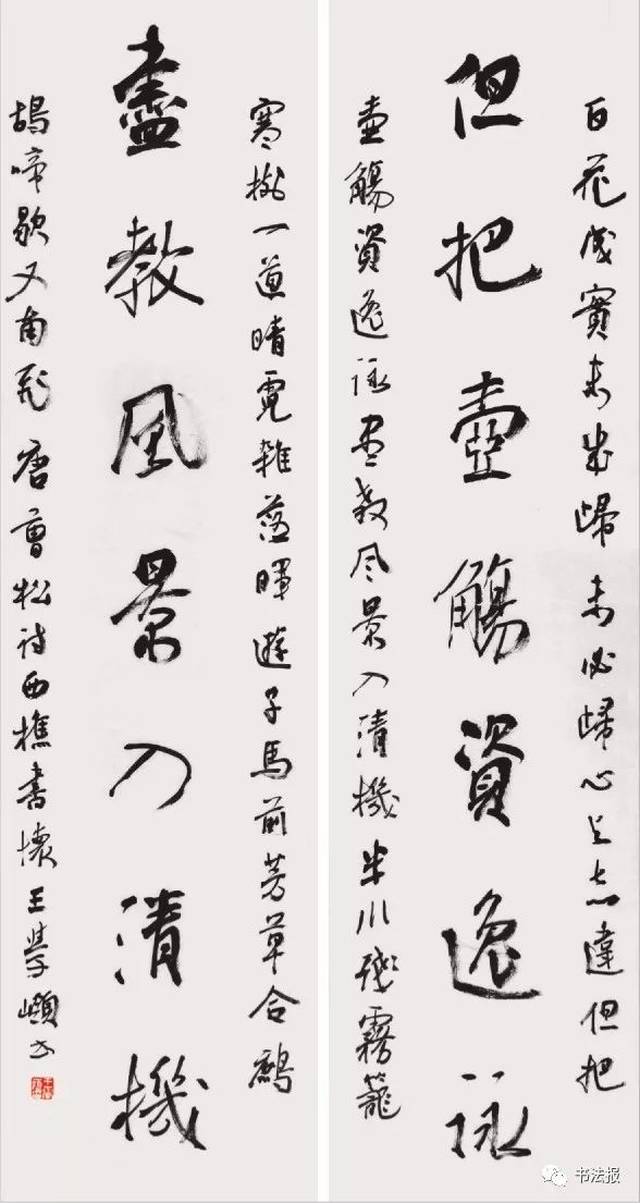 百花成實未成歸未必歸心与志違但把
但把壺觴資逸詠
壺觴資逸詠尽教风景入清機半川殘霧籠
寒樹一道晴霓雜落暉遊子馬前芳草合鷓
盡教風景入清機
鴣啼歇又南飛唐曹松詩西樵書懷王學嶺書
书法报